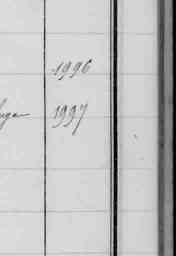 1996
1997